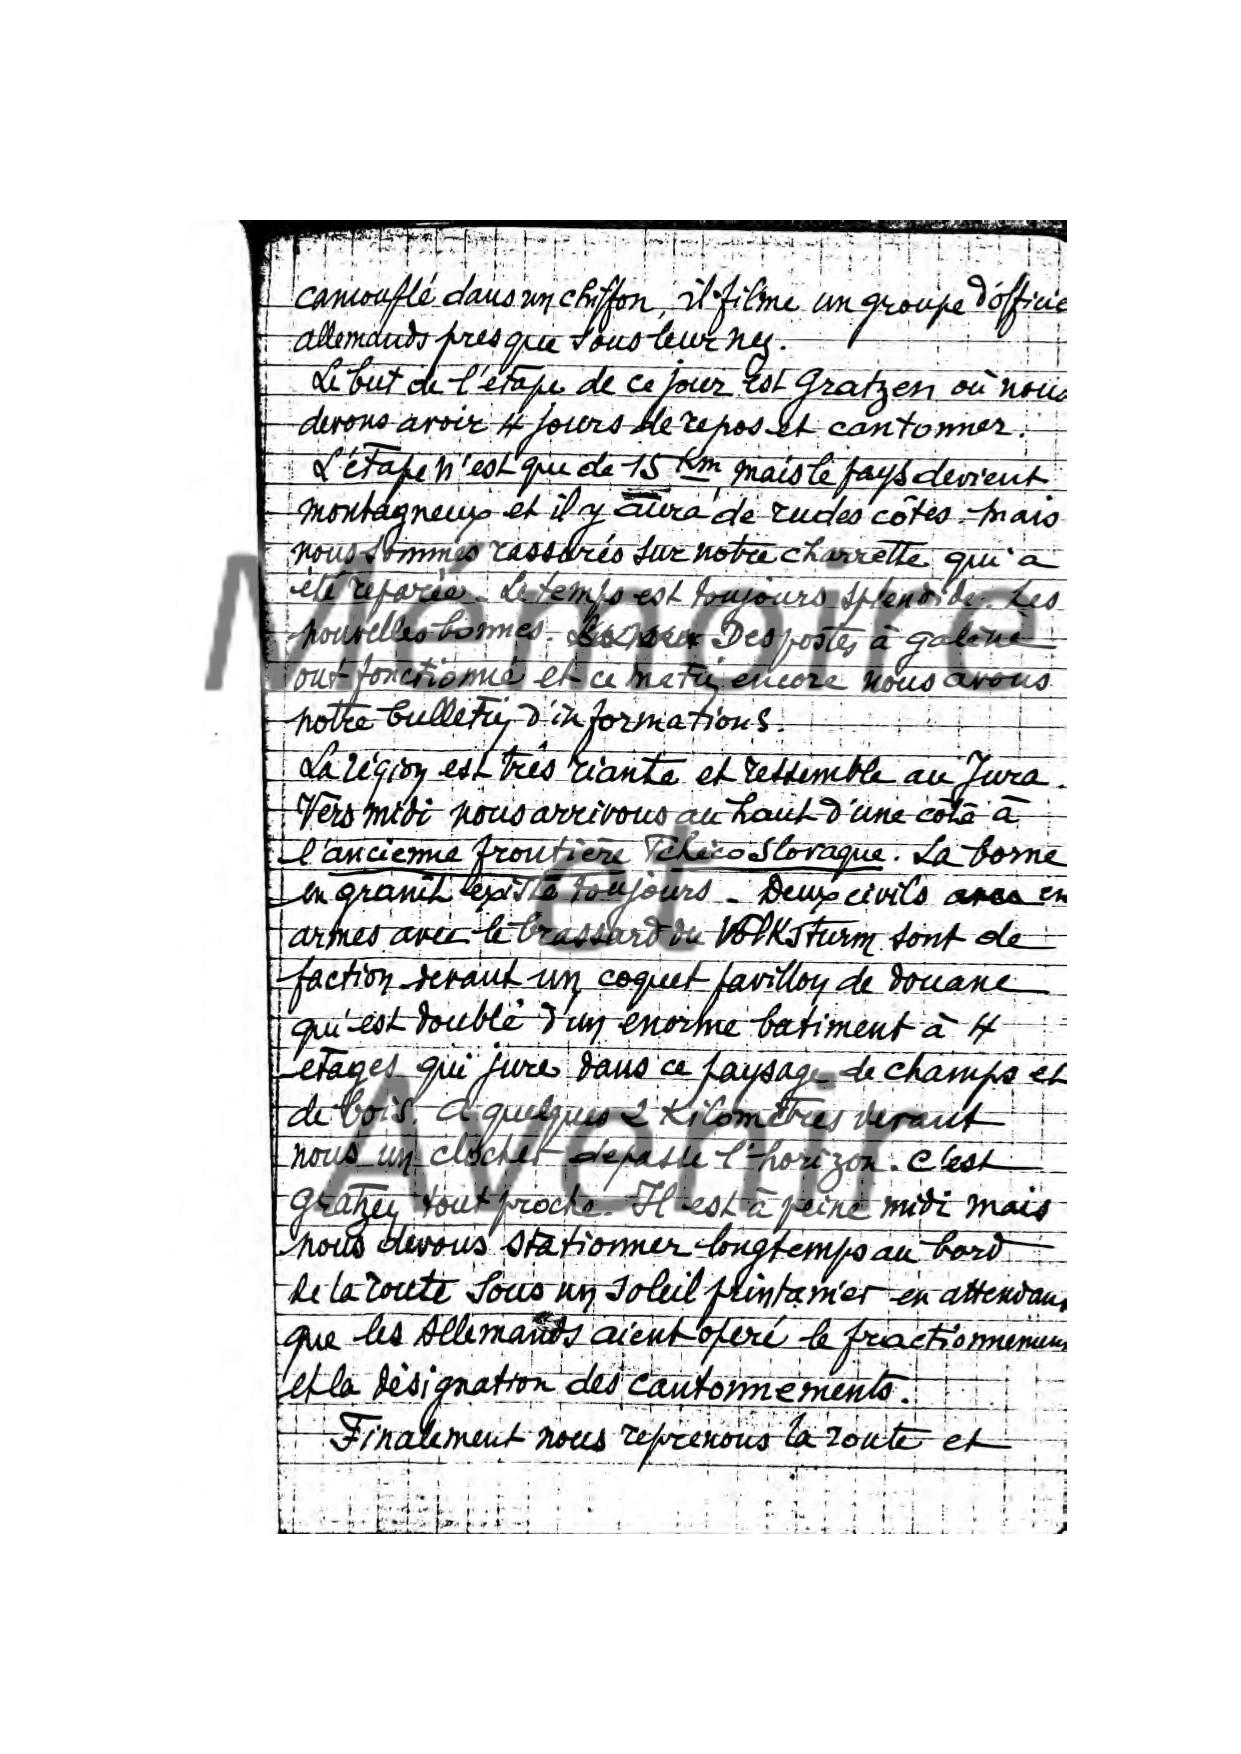 camouflé dans un chiffon, il filme un groupe d'officie
allemands presque sous leur nez.
Le but de l'étape de ce jour est Gratzen où nous
devons avoir 4 jours de repos et cantonner.
L'étape n'est que de 15 Km mais le pays devient
montagneux et il y aura de rudes côtes. Mais
nous sommes rassurés sur notre charrette qui a
été réparée. Le temps est toujours splendide. Les
nouvelles bonnes. Des postes à galène
ont fonctionné et ce matin encore nous avons
notre bulletin d'informations.
La région est très riante et ressemble au Jura.
Vers midi nous arrivons au haut d'une côte à
l'ancienne frontière Tchécoslovaque. La borne
en granit existe toujours. Deux civils en
armes avec le brassard du Volksturm sont de
faction devant un coquet pavillon de douane
qui est doublé d'un énorme batiment à 4
etages qui jure dans ce paysage de champs et
de bois. A quelques 2 Kilomètres devant
nous un clocher dépasse l'horizon. C'est
Gratzen tout proche. Il est à peine midi mais
nous devons stationner longtemps au bord
de la route sous un soleil printanier en attendan
que les Allemands aient opéré le fractionnemen
et la désignation des cantonnements.
Finalement nous reprenons la route et
Mémoire
et
Avenir